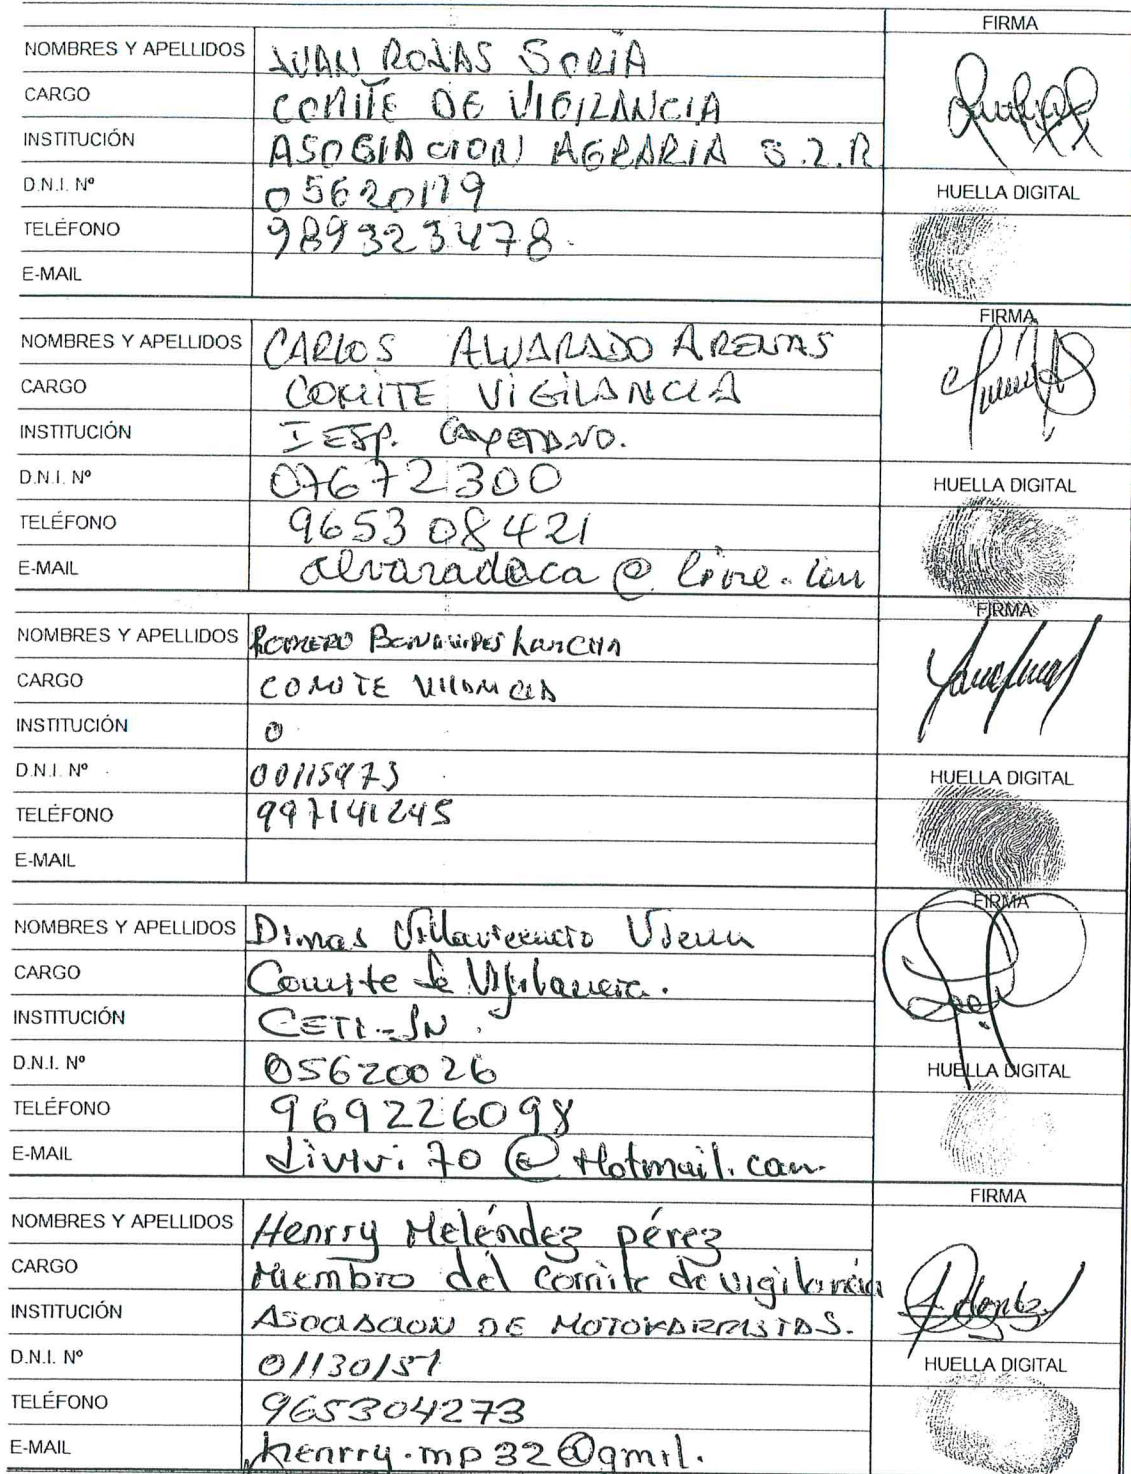 FIRMA
NOMBRES Y APELLIDOS JUAN ROJAS SORIA
CARGO COMITE DE VIGILANCIA
INSTITUCIÓN ASOCIACION AGRARIA S.I.R
D.N.I. Nº 05620179
HUELLA DIGITAL
TELÉFONO 989323478.
E-MAIL
FIRMA
NOMBRES Y APELLIDOS CARLOS ALVARADO ARENAS
CARGO COMITE VIGILANCIA
INSTITUCIÓN IESP.
D.N.I. Nº 07672300
HUELLA DIGITAL
TELÉFONO 965308421
E-MAIL alvaradoca@live.com
FIRMA
NOMBRES Y APELLIDOS ROMERO
CARGO COMITE
INSTITUCIÓN 0
D.N.I. Nº 00115973
HUELLA DIGITAL
TELÉFONO 997141245
E-MAIL
FIRMA
NOMBRES Y APELLIDOS Dimas Villavicencio
CARGO Comite de Vigilancia.
INSTITUCIÓN CETI-SN.
D.N.I. Nº 05620026
HUELLA DIGITAL
TELÉFONO 969226098
E-MAIL divivi70@Hotmail.com
FIRMA
NOMBRES Y APELLIDOS Henrry Meléndez pérez
CARGO Miembro del comite de vigilancia
INSTITUCIÓN ASOCIACION DE MOTOKARRISTAS.
D.N.I. Nº 01130151
HUELLA DIGITAL
TELÉFONO 965304273
E-MAIL henrry.mp32@gmil.